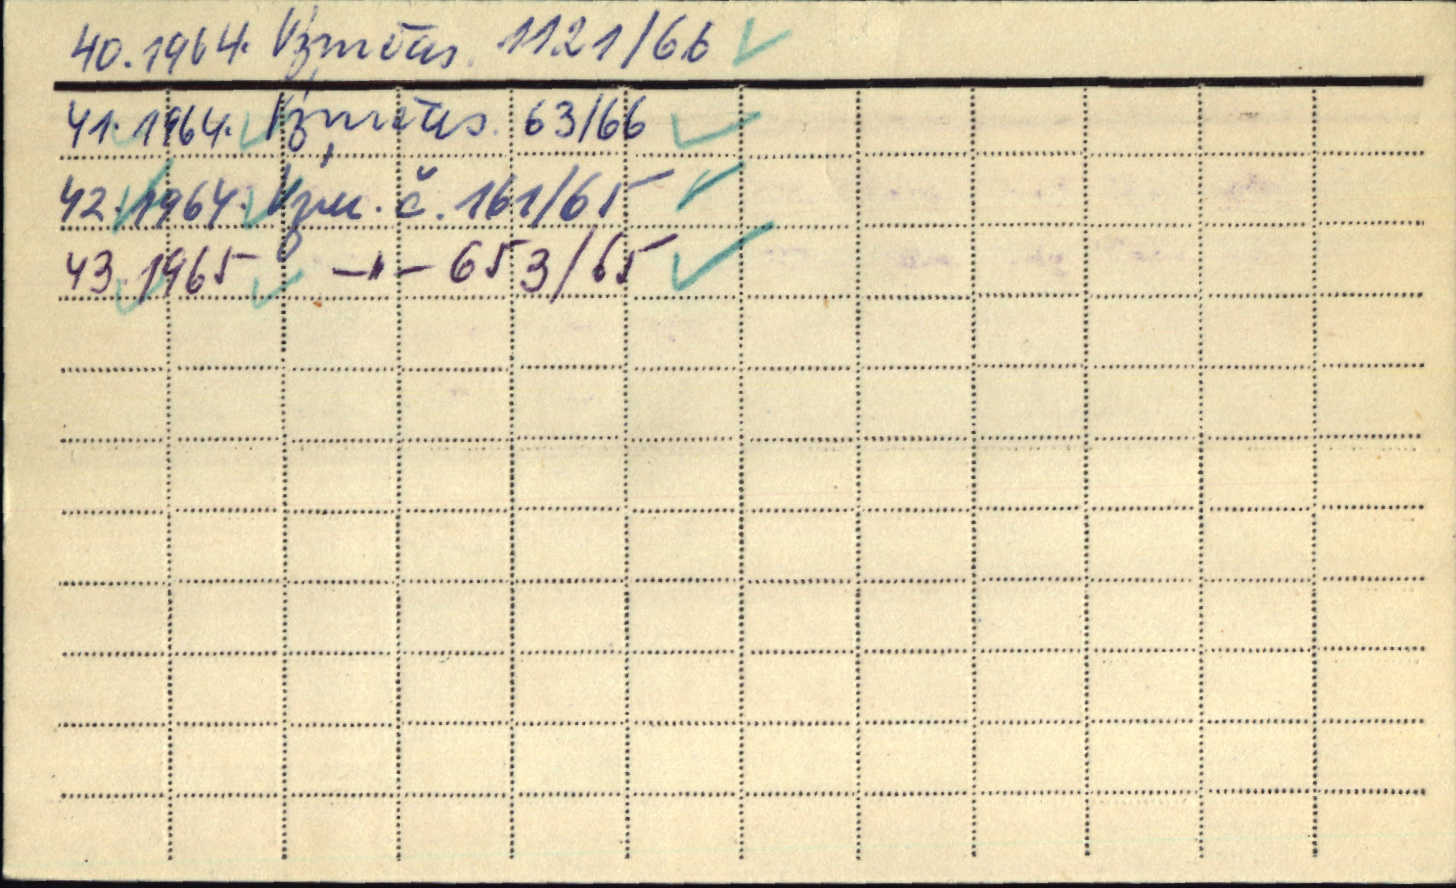 40. 1964. Vzm. čas. 1121/66 ✓
41. 1964. Vzm. čas. 63/66 ✓
42. 1964. Vzm. č. 161/65 ✓
43. 1965 —"— 653/65 ✓